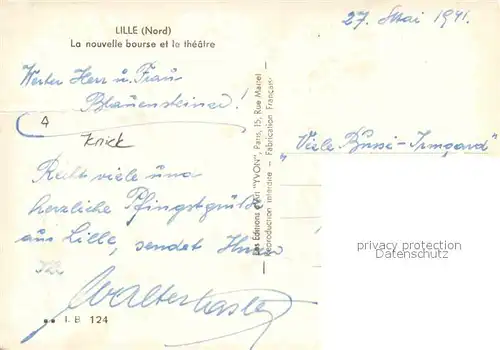 LILLE (Nord)
La nouvelle bourse et le théâtre
27. Mai 1941.
Werter Herr u. Frau
Blauensteiner!
4
Knick
"Viele Bussi-Irmgard"
Recht viele und
herzliche Pfingstgrüße
aus Lille, sendet Ihnen
Walter
I. B. 124
Les Editions d'Art "YVON", Paris, 15, Rue Martel
Reproduction interdite - Fabrication Française
privacy protection
watermark